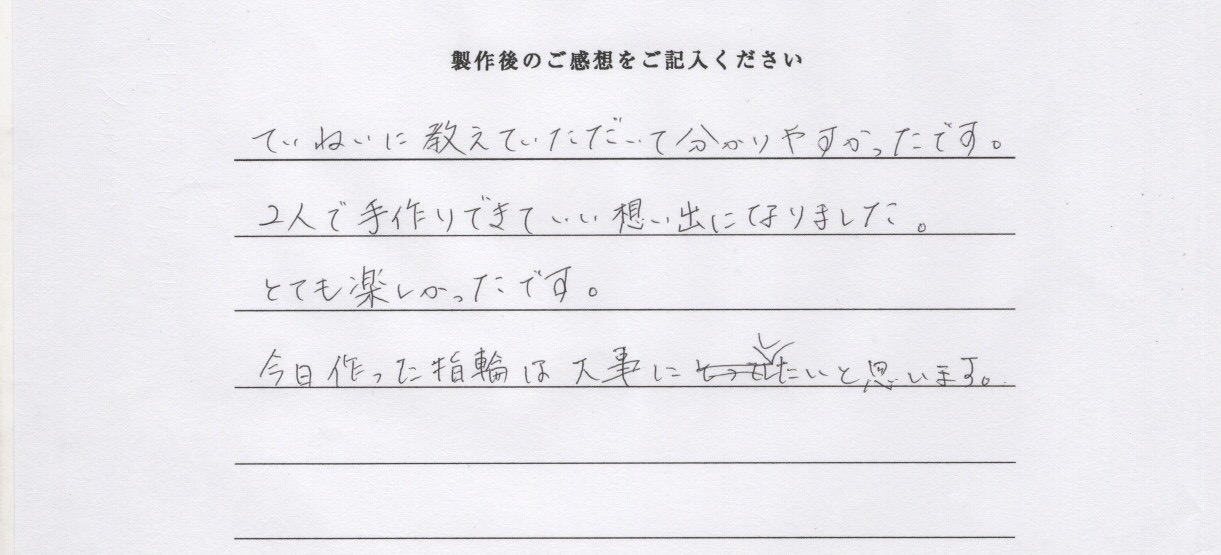 製作後のご感想をご記入ください
ていねいに教えていただいて分かりやすかったです。
2人で手作りできていい想い出になりました。
とても楽しかったです。
今日作った指輪は大事にしたいと思います。